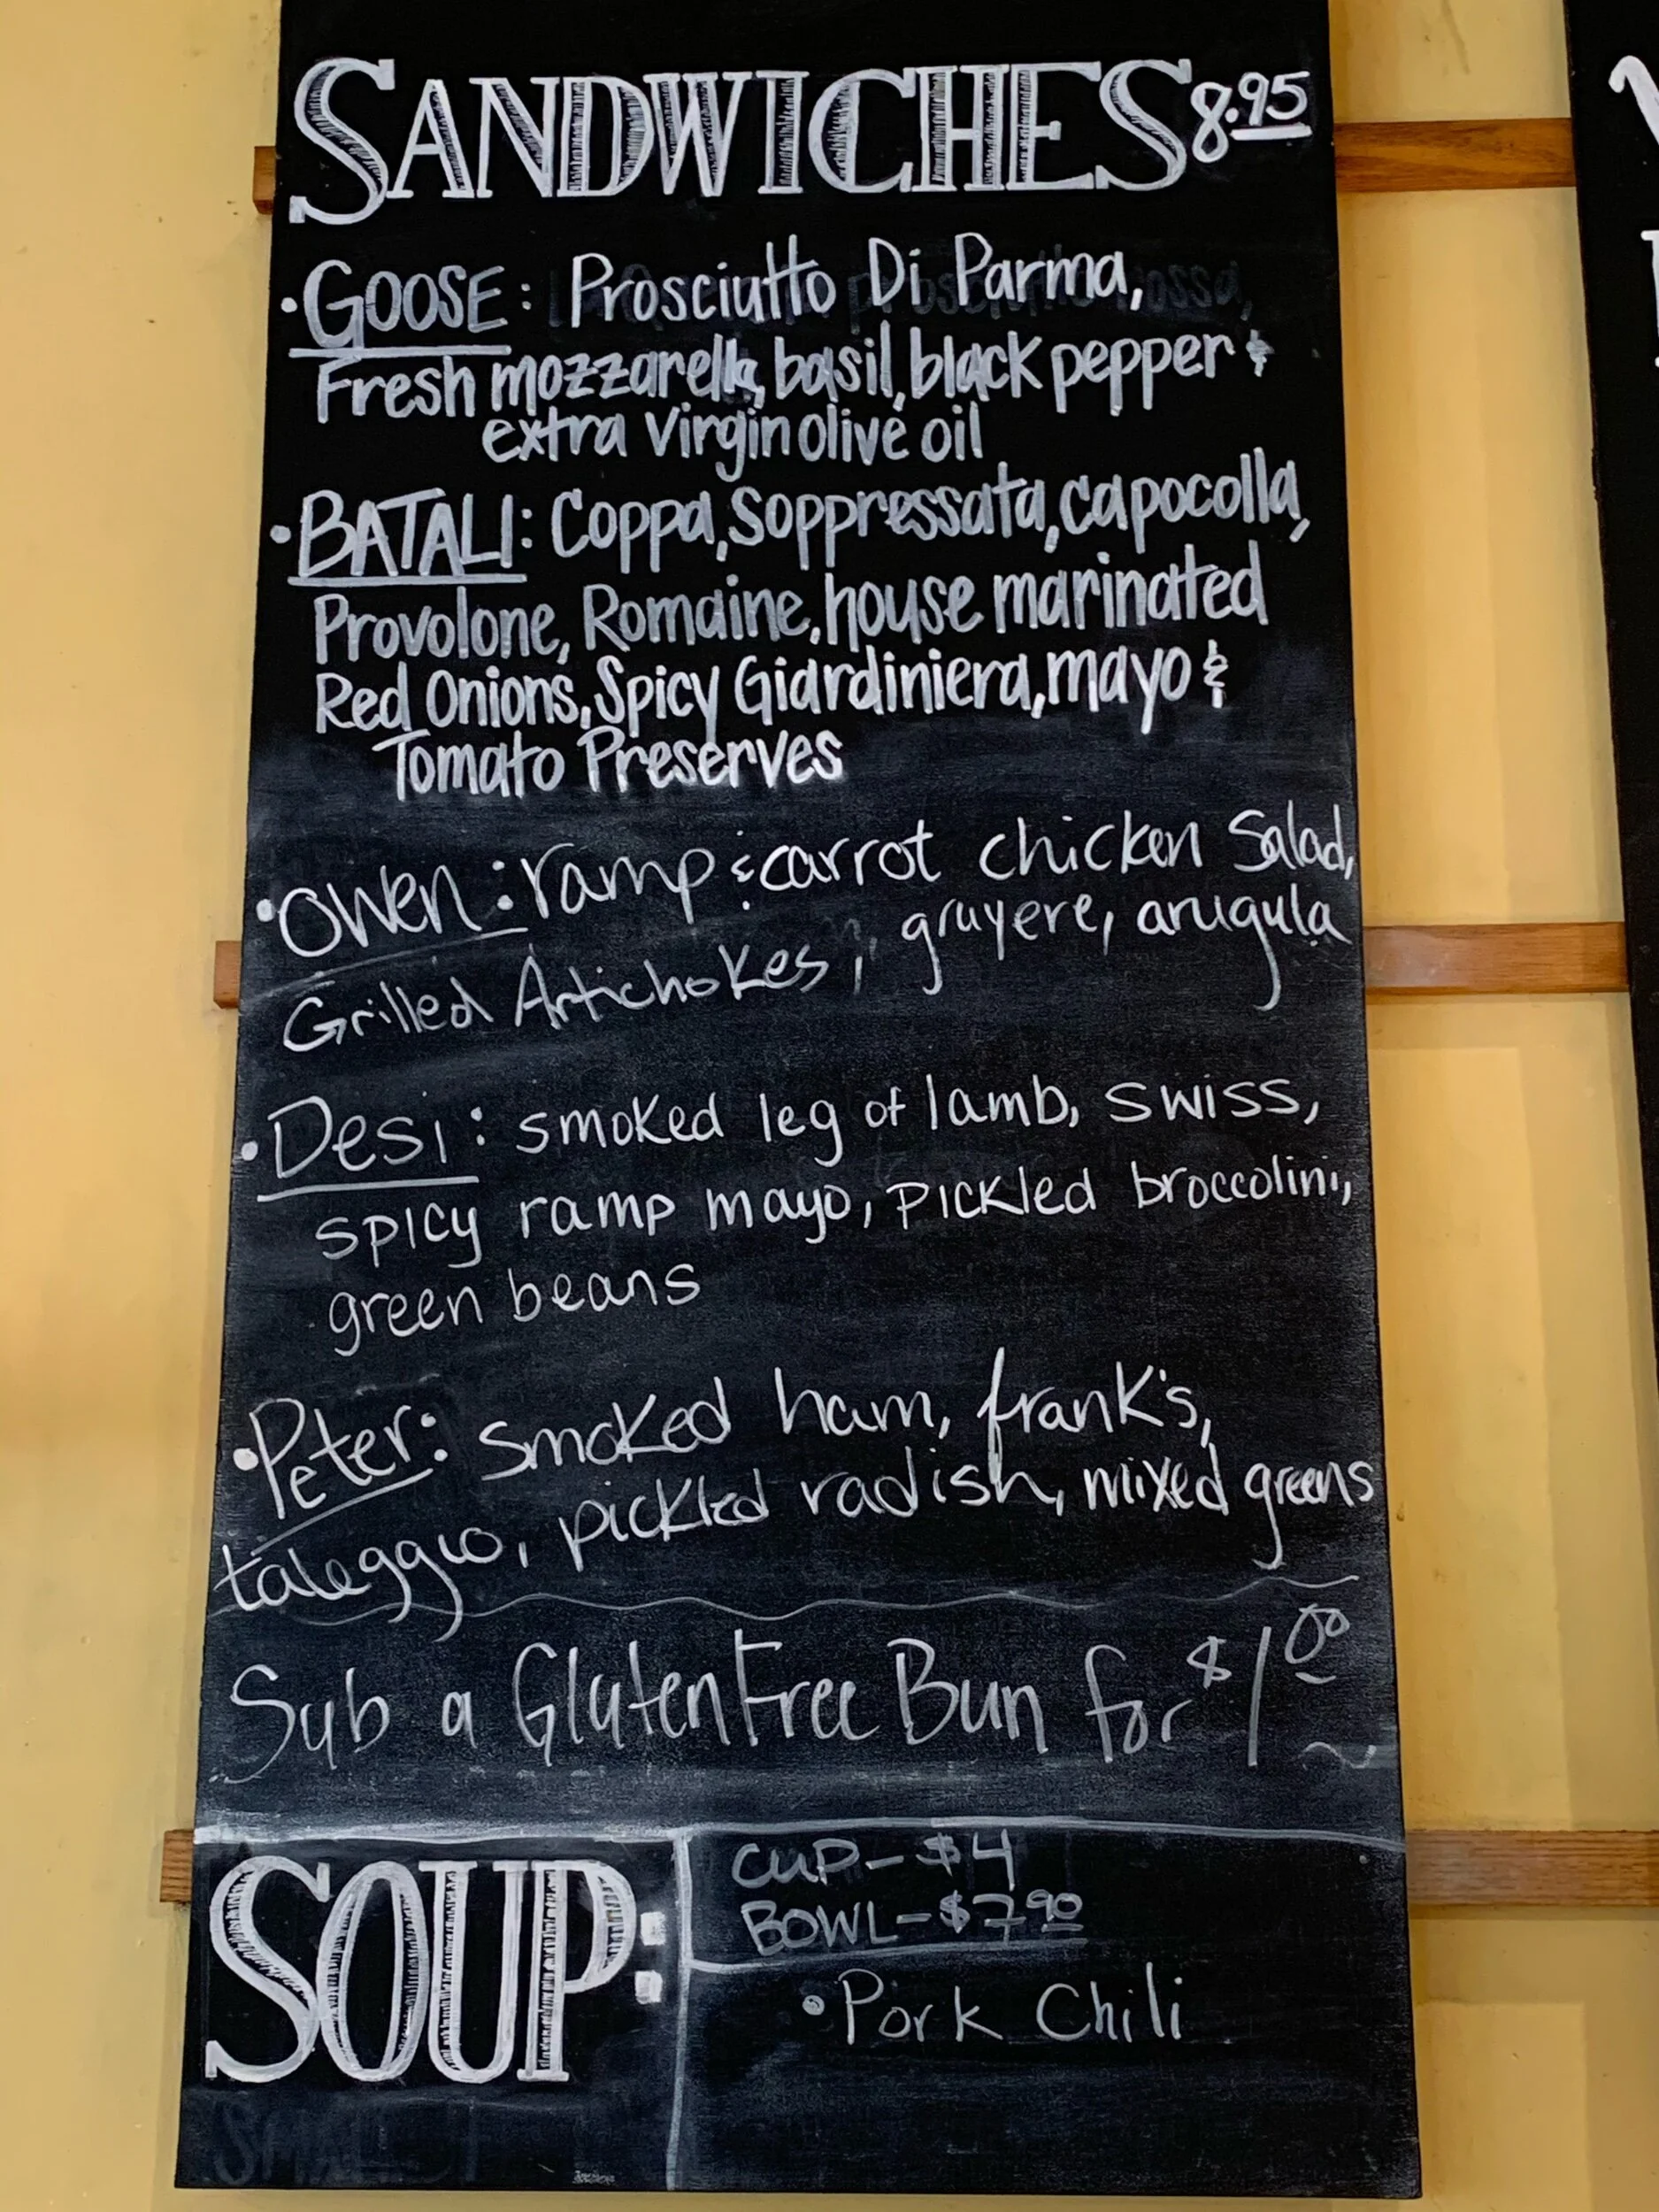 SANDWICHES 8.95
• GOOSE: Prosciutto Di Parma,
Fresh mozzarella, basil, black pepper &
extra Virgin olive oil
• BATALI: Coppa, Soppressata, Capocolla,
Provolone, Romaine, house marinated
Red Onions, Spicy Giardiniera, mayo &
Tomato Preserves
• Owen: ramp & carrot chicken Salad,
Grilled Artichokes, gruyere, arugula
• Desi: smoked leg of lamb, swiss,
spicy ramp mayo, pickled broccolini,
green beans
• Peter: smoked ham, frank's,
taleggio, pickled radish, mixed greens
Sub a Gluten Free Bun for $1.00
SOUP:
CUP - $4
BOWL - $7.90
• Pork Chili